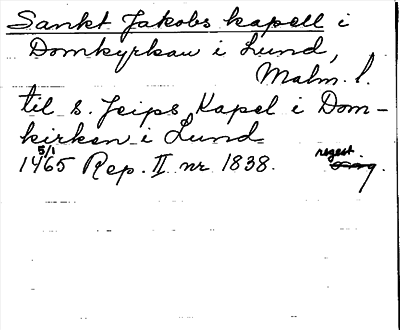 Sankt Jakobs kapell i
Domkyrkan i Lund,
Malm. l.
til s. Jeips Kapel i Dom-
kirken i Lund
5/1
1465 Rep. II nr 1838. regest.